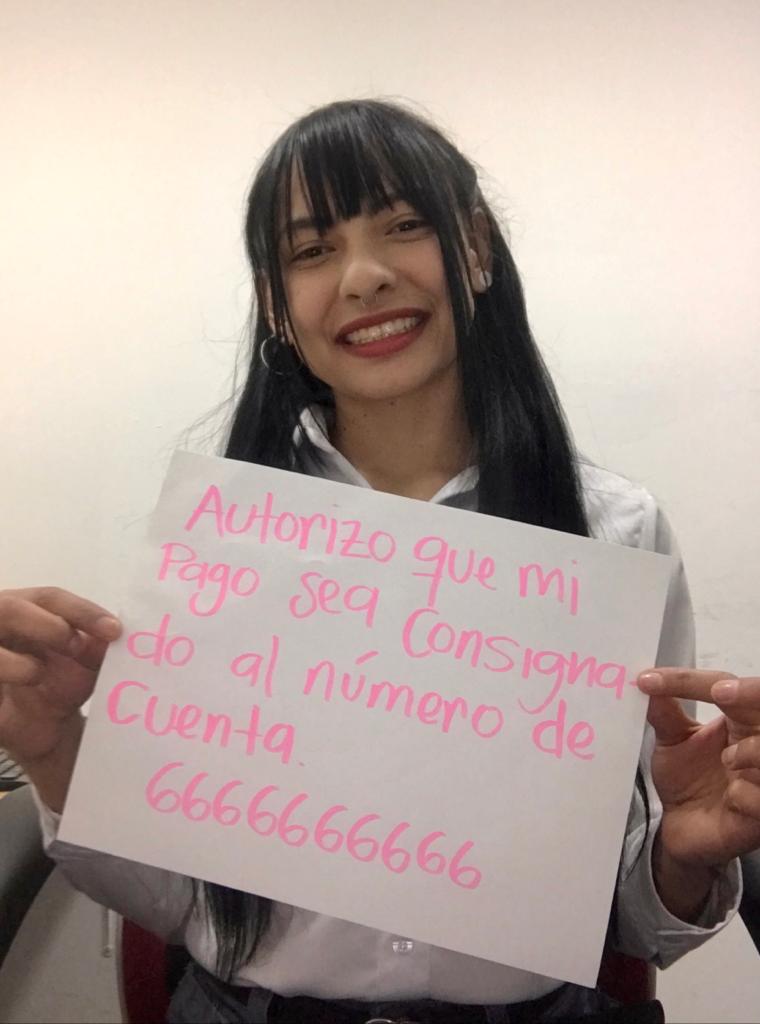 Autorizo que mi
Pago sea Consigna-
do al número de
Cuenta.
6666666666